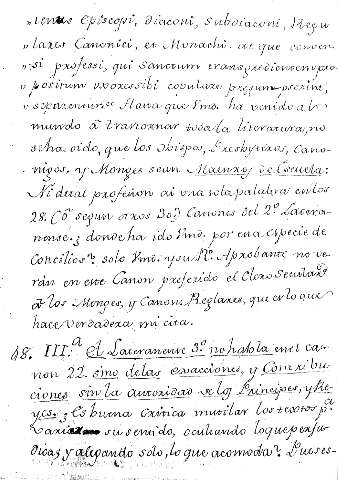 „tenus Episcopi, Diaconi, Subdiaconi, Regu
„lares Canonici, et Monachi. at que conver
„si professi, qui sanctum transgredientes pro
„positum uxores sibi copulare presumpserint,
„separentur: Hasta que Vmd. ha venido al
mundo â trastornar toda la literatura, no
se ha oido, que los obispos, Presbyteros, Cano-
nigos, y Monges sean Maestros de Escuela:
Ni de tal profesion ai una sola palabra en los
28. Có segun otros 30. Canones del 2º Latera-
nense. ¿ donde ha ido Vmd. por esa especie de
Concilios? solo Vmd. y su Rº Aprobante no ve-
rán en este Canon preferido el Clero Secular
â los Monges, y Canons Reglares, que es lo que
hace verdadera mi cita.
48. III.ª El Lateranense 3º no habla en el ca-
non 22. sino de las exacciones, y Contribu-
ciones sin la autoridad de los Principes, y Re-
yes. ¿ Es buena Critica mutilar los textos pª
variar su sentido, ocultando lo que perju-
dica, y alegando solo, lo que acomoda? Pues es-